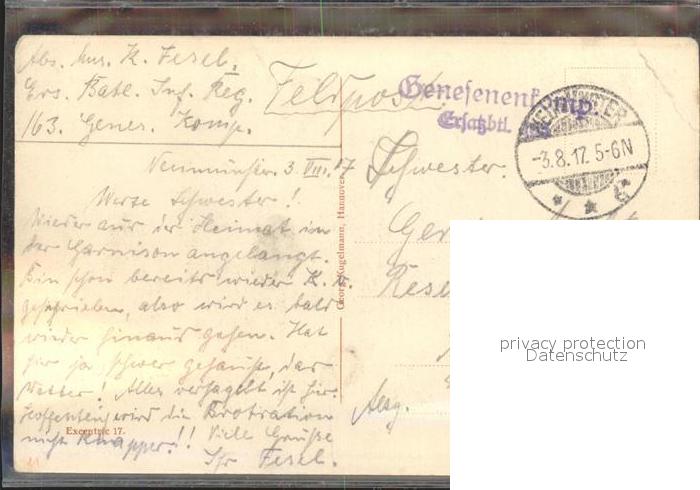 Abs. Mus. K. Fesel.
Ers. Batl. Inf. Reg.
163. Genes. Komp.
Feldpost.
Genesenenkomp.
Ersatzbtl.
NEUMÜNSTER
-3.8.17. 5-6N
Neumünster. 3. VIII. 17
Werte Schwester!
Wieder aus der Heimat in
der Garnison angelangt.
Bin schon bereits wieder K. v.
geschrieben, also wird es bald
wieder hinaus gehen. Hat
hir ja schwer gehaust, das
Wetter! Alles verhagelt ist hir.
Hoffentlich wird die Brotration
nicht Knapper!! Viele Grüsse
Ihr Fesel.
Excentric 17.
Georg Kugelmann, Hannover
Schwester.
Ger
Rese
Abzg.
privacy protection
Datenschutz